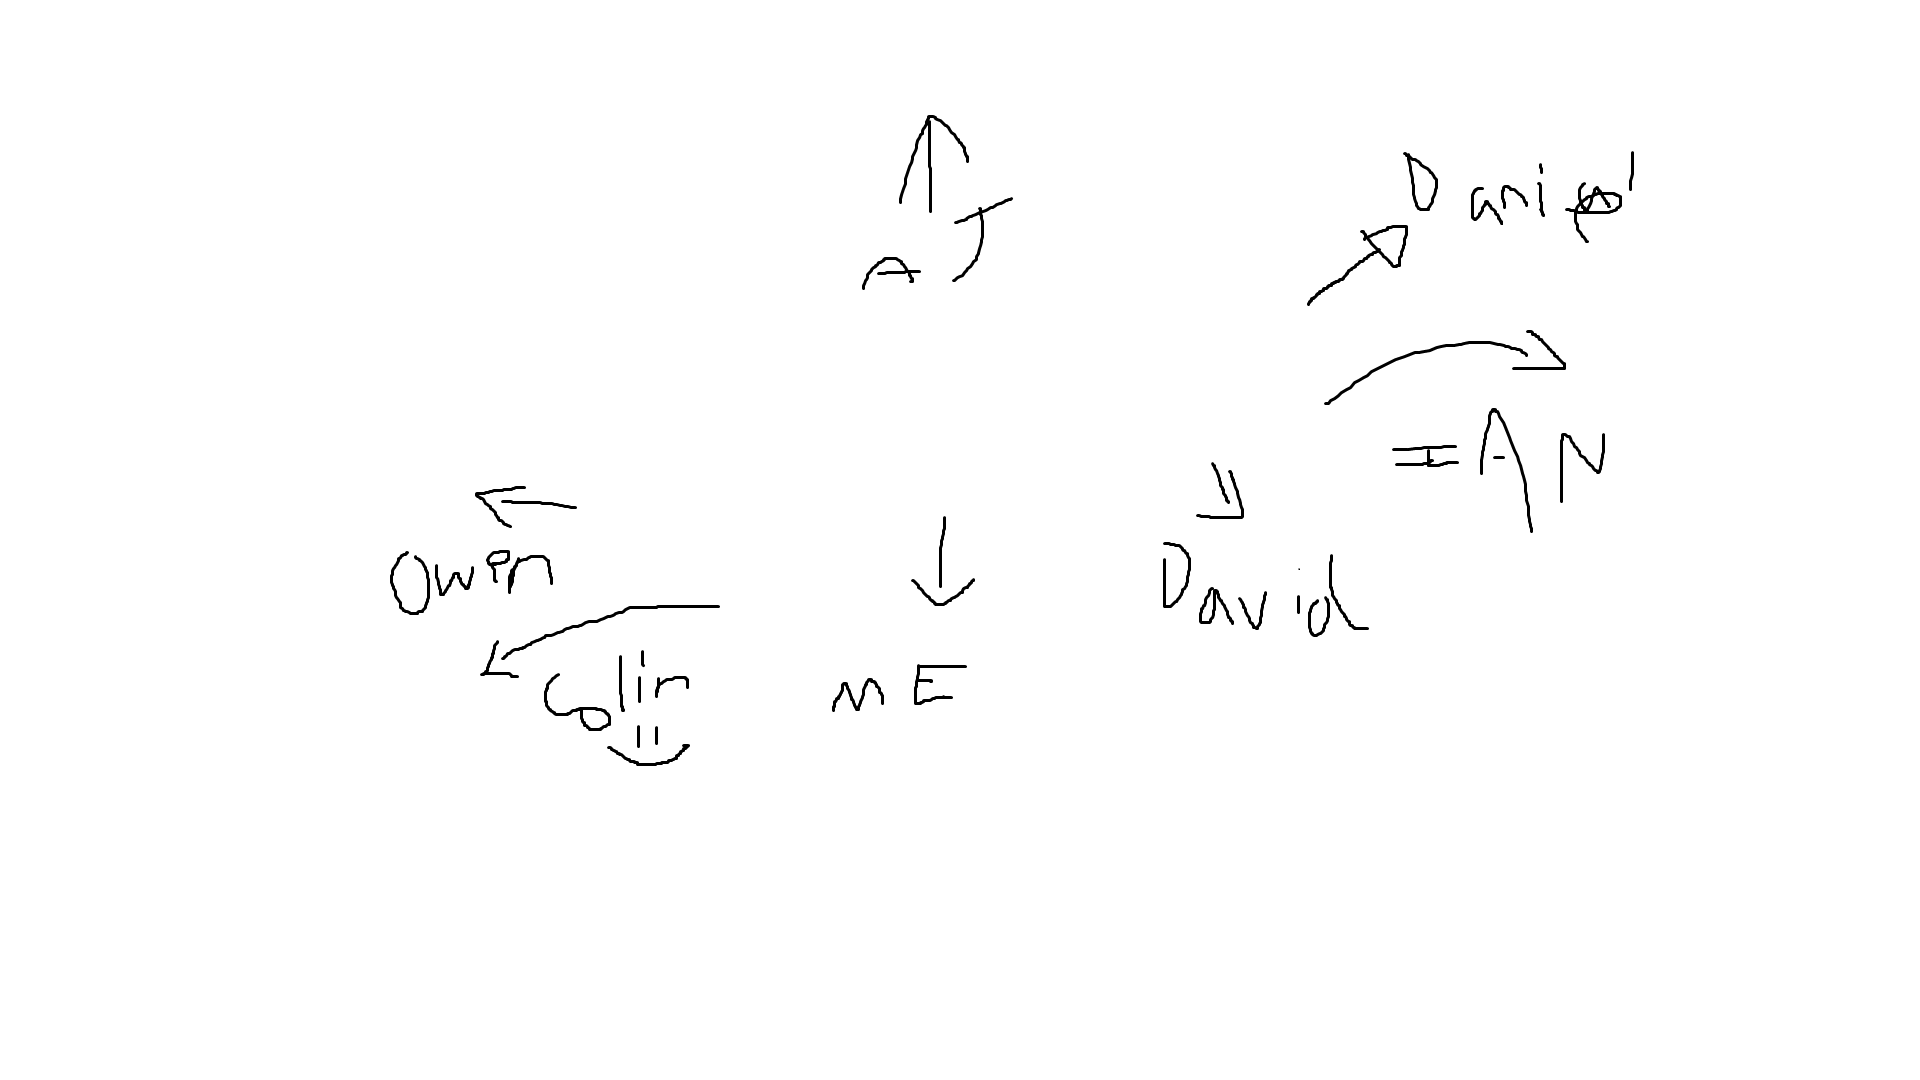 AJ
Daniel
IAN
Owen
David
Colin
mE